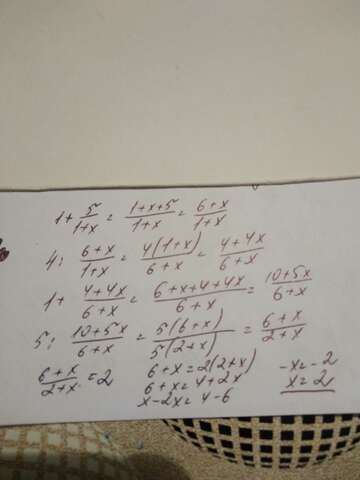 1+ 5/(1+x) = (1+x+5)/(1+x) = (6+x)/(1+x)
4: (6+x)/(1+x) = 4(1+x)/(6+x) = (4+4x)/(6+x)
1+ (4+4x)/(6+x) = (6+x+4+4x)/(6+x) = (10+5x)/(6+x)
5: (10+5x)/(6+x) = 5(6+x)/5(2+x) = (6+x)/(2+x)
(6+x)/(2+x) = 2
6+x=2(2+x)
6+x=4+2x
x-2x=4-6
-x=-2
x=2